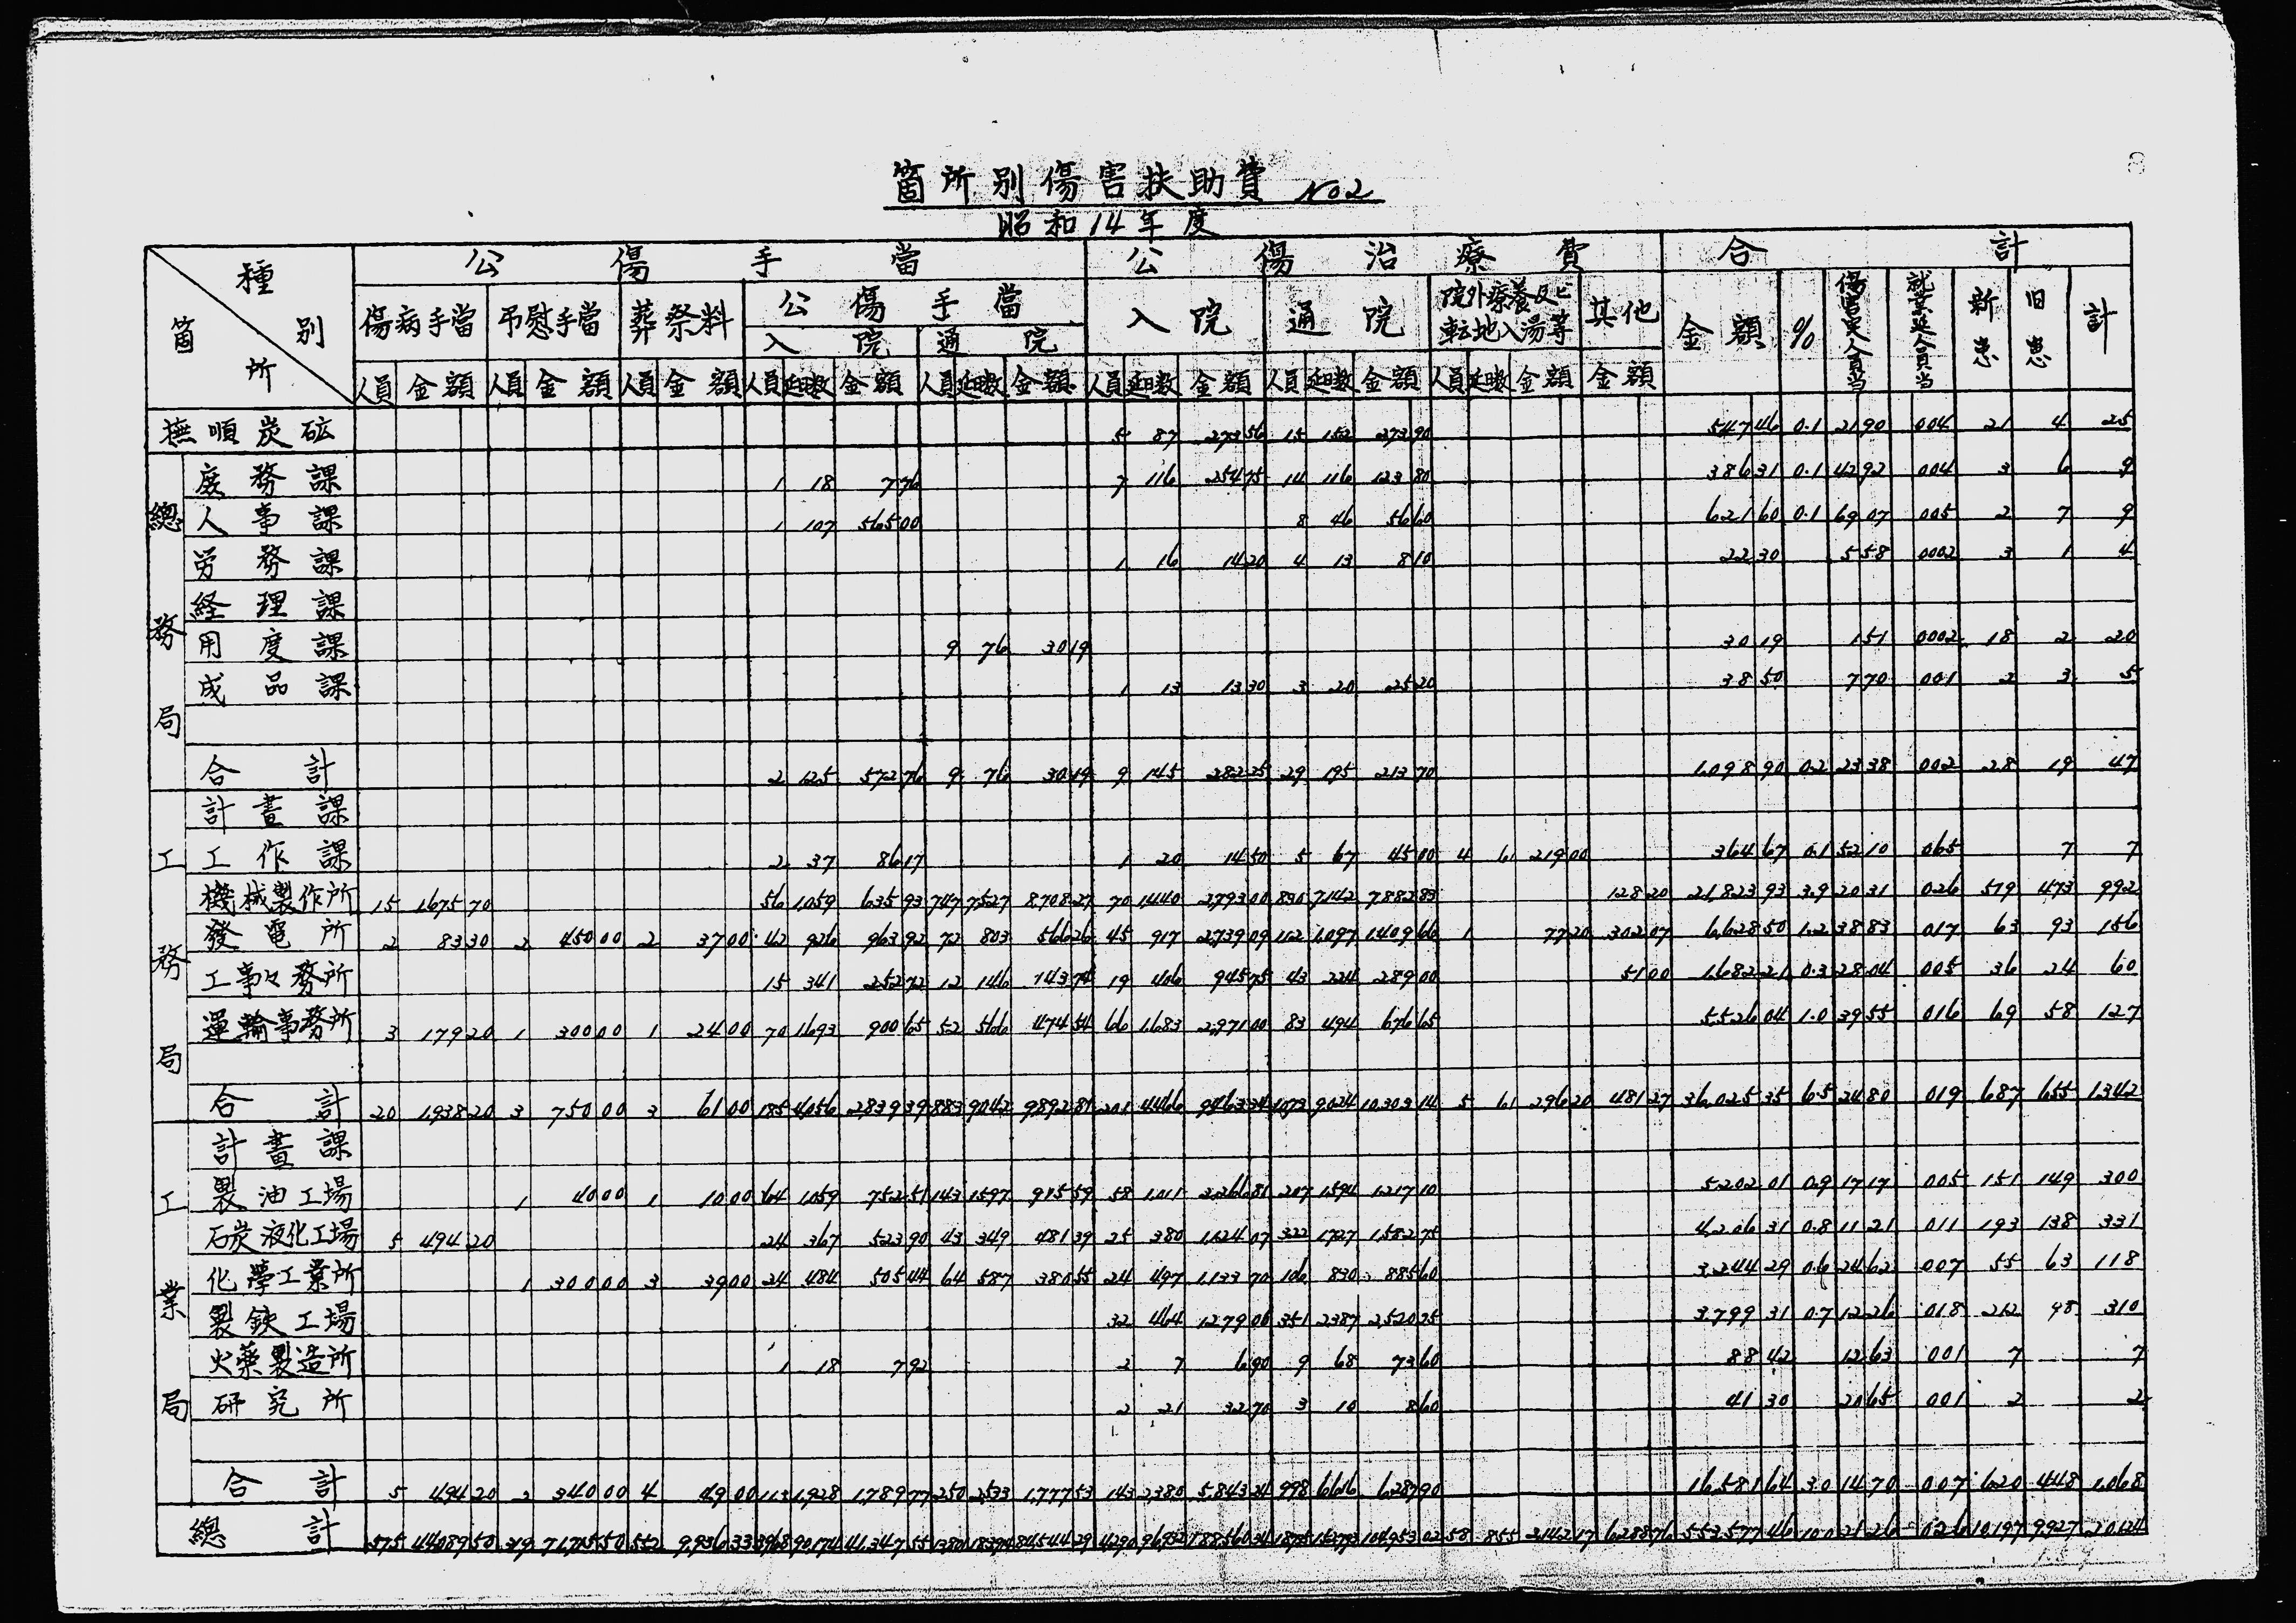 8
箇所別傷害扶助費 No2
昭和14年度
種別 箇所 公傷手當 公傷治療費 合計
傷病手當 弔慰手當 葬祭料 公傷手當 入院 通院 院外療養及ビ転地入湯等 其他 金額 % 傷害実人員当 就業延人員当 新患 旧患 計
入院 通院
人員 金額 人員 金額 人員 金額 人員 延日数 金額 人員 延日数 金額 人員 延日数 金額 人員 延日数 金額 人員 延日数 金額 金額
撫順炭砿 5 87 273 56 15 152 273 90 547 46 0.1 21 90 004 21 4 25
總務局
庶務課 1 18 7 76 7 116 254 75 14 116 123 80 386 31 0.1 42 92 004 3 6 9
人事課 1 107 565 00 8 46 56 60 621 60 0.1 69 07 005 2 7 9
労務課 1 16 14 20 4 13 8 10 22 30 5 58 0002 3 1 4
経理課
用度課 9 76 30 19 30 19 1 51 0002 18 2 20
成品課 1 13 13 30 3 20 25 20 38 50 7 70 001 2 3 5
合計 2 125 572 76 9 76 30 19 9 145 282 25 29 195 213 70 1,098 90 0.2 23 38 002 28 19 47
工務局
計畫課
工作課 2 37 86 17 1 20 14 50 5 67 45 00 4 61 219 00 364 67 0.1 52 10 065 7 7
機械製作所 15 1,675 70 56 1,059 635 93 747 7,527 8,708 27 70 1,440 2,793 00 830 7,142 7,882 83 128 20 21,823 93 3.9 20 31 026 519 473 992
發電所 2 83 30 2 450 00 2 37 00 42 926 963 92 72 803 566 26 45 917 2,739 09 112 1,097 1,409 66 1 77 20 302 07 6,628 50 1.2 38 83 017 63 93 156
工事々務所 15 341 252 72 12 146 143 74 19 406 945 75 43 224 289 00 51 00 1,682 21 0.3 28 04 005 36 24 60
運輸事務所 3 179 20 1 300 00 1 24 00 70 1,693 900 65 52 566 474 54 66 1,683 2,971 00 83 494 676 65 5,526 04 1.0 39 55 016 69 58 127
合計 20 1,938 20 3 750 00 3 61 00 185 4,056 2,839 39 883 9,042 9,892 81 201 4,466 9,463 34 1,073 9,024 10,303 14 5 61 296 20 481 27 36,025 35 6.5 24 80 019 687 655 1,342
工業局
計畫課
製油工場 1 40 00 1 10 00 64 1,059 752 51 143 1,597 915 59 58 1,011 2,266 81 207 1,594 1,217 10 5,202 01 0.9 17 17 005 151 149 300
石炭液化工場 5 494 20 24 367 523 90 43 349 481 39 25 380 1,124 07 322 1,727 1,582 75 4,206 31 0.8 11 21 011 193 138 331
化學工業所 1 300 00 3 39 00 24 484 505 44 64 587 380 55 24 497 1,133 70 106 830 885 60 3,244 29 0.6 24 62 007 55 63 118
製鉄工場 32 464 1,279 06 351 2,387 2,520 25 3,799 31 0.7 12 26 018 212 98 310
火藥製造所 1 18 7 92 2 7 6 90 9 68 73 60 88 42 12 63 001 7 7
研究所 2 21 32 70 3 10 8 60 41 30 20 65 001 2 2
合計 5 494 20 2 340 00 4 49 00 113 1,928 1,789 77 250 2,533 1,777 53 143 2,380 5,843 24 998 6,616 6,287 90 16,581 64 3.0 14 70 007 620 448 1,068
總計 575 44,089 50 319 71,715 50 552 9,936 33 3,968 90,174 41,347 55 84,544 29 4,290 96,932 188,560 34 104,953 02 58 855 2,142 17 6,288 76 553,577 46 100 21 26 026 10,197 9,927 20,124